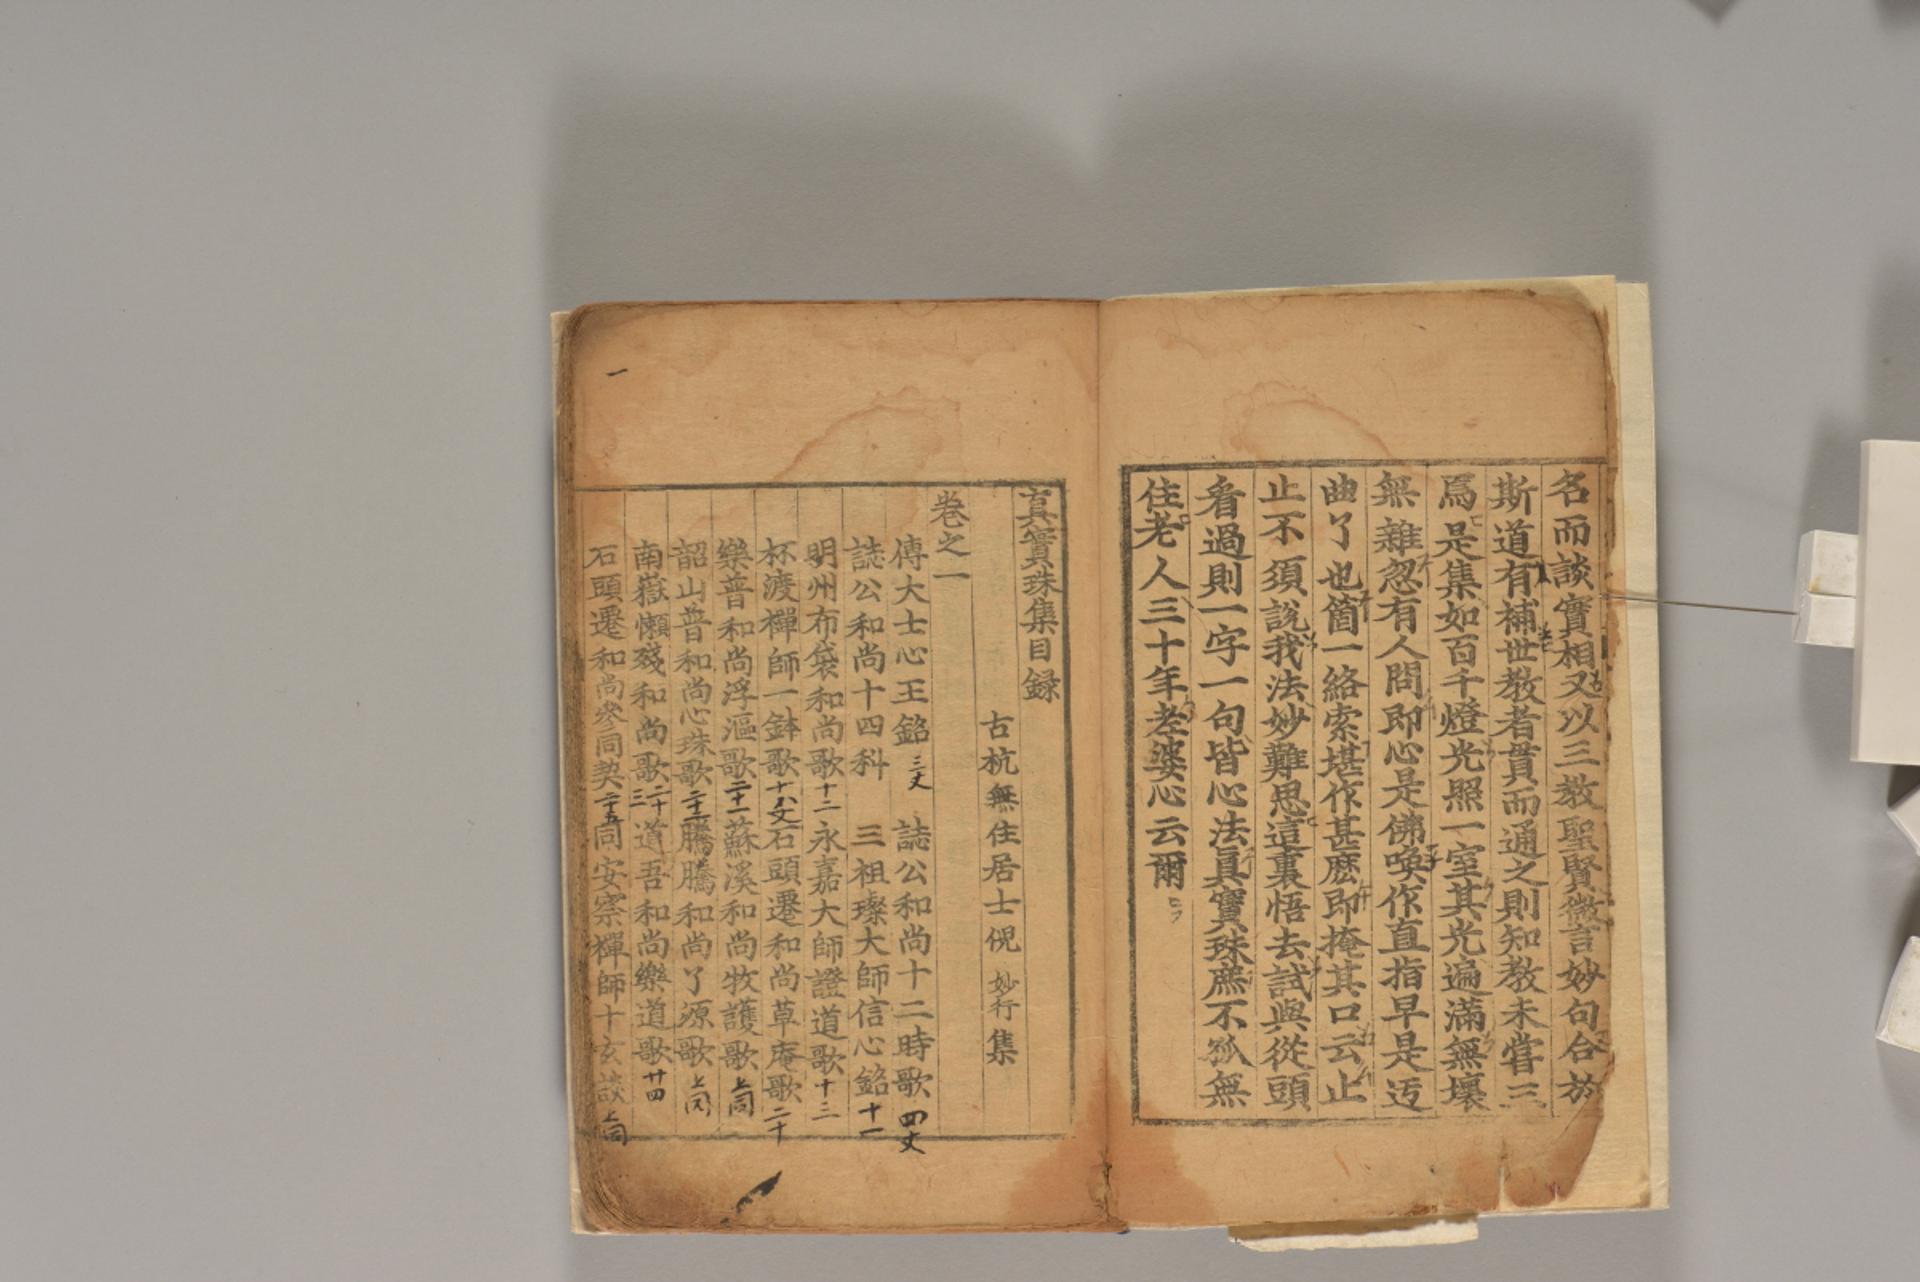 名而談實相又以三教聖賢微言妙句合於
斯道有補世教者貫而通之則知教未嘗三
焉是集如百千燈光照一室其光遍滿無壞
無雜忽有人問即心是佛喚作直指早是迃
曲了也箇一絡索堪作甚麽即掩其口云止
止不須說我法妙難思這裏悟去試與從頭
看過則一字一句皆心法眞寶珠庶不孤無
住老人三十年老婆心云爾
真實珠集目録
古杭無住居士倪妙行集
卷之一
傅大士心王銘三丈 誌公和尚十二時歌四丈
誌公和尚十四科 三祖璨大師信心銘十一
明州布袋和尚歌十二永嘉大師證道歌十三
杯渡禪師一鉢歌十八丈石頭遷和尚草庵歌二十
樂普和尚浮漚歌二十一蘇溪和尚牧護歌上同
韶山普和尚心珠歌二十二騰騰和尚了源歌上仝
南嶽懶殘和尚歌二十三道吾和尚樂道歌廿四
石頭遷和尚參同契二十五同安察禪師十玄談上同
一